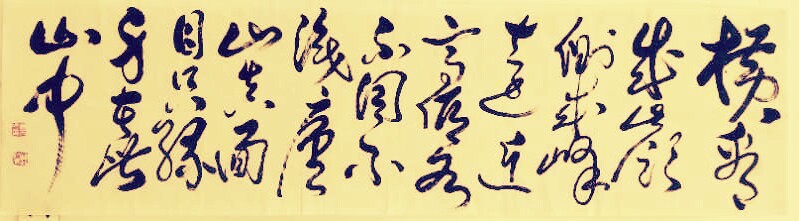 橫看
成嶺
側成峰
遠近
高低各
不同不
識廬
山真面
目只緣
身在此
山中